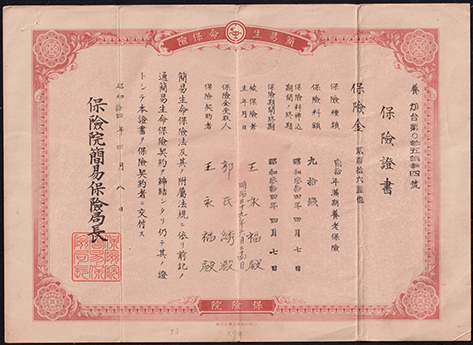 簡易生命保險
保險證書
保險金
保險種類
貳拾年滿期養老保險
保險料額
九拾錢
保險料拂込期間ノ終期
昭和參拾四年四月七日
保險期間ノ終期
昭和參拾四年四月七日
被保險者
王永福殿
生年月日
保險金受取人
保險契約者
王永福殿
簡易生命保險法及其ノ附屬法規ニ依リ前記ノ
通簡易生命保險契約ヲ締結シタリ仍テ其ノ證
トシテ本證書ヲ保險契約者ニ交付ス
昭和拾四年四月八日
保險院簡易保險局長
保險院